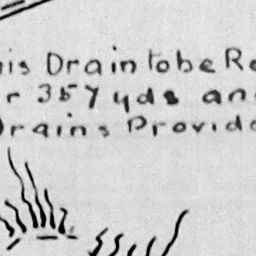 his Drain to be Re
r 357 yds an
Drains Provide